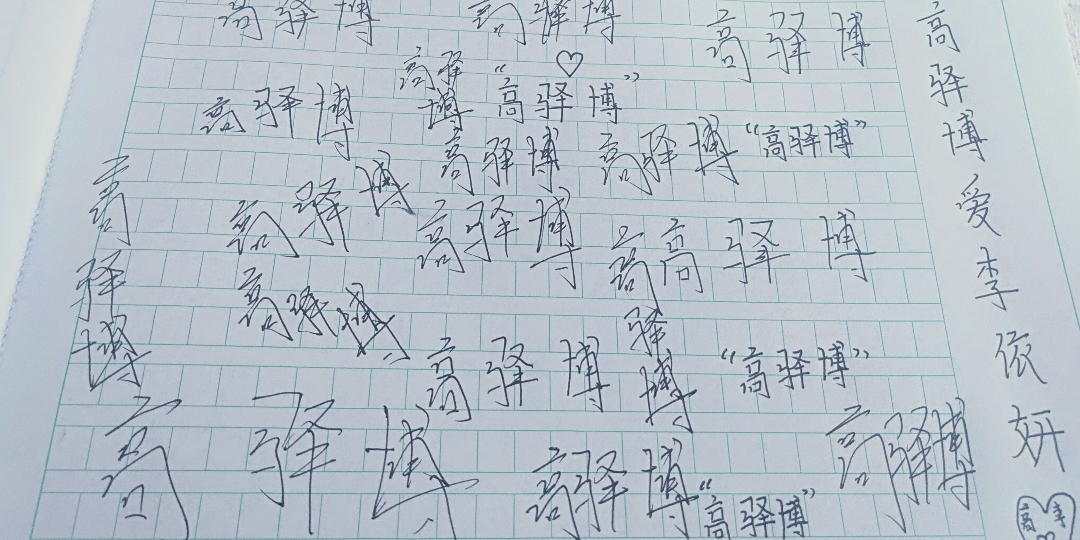 高驿博
高驿博
高驿博
高驿博
“高驿博”
高驿博
高驿博
高驿博
“高驿博”
高驿博
高驿博
高驿博
高驿博
高驿博
高驿博
高
高驿博
高驿博
“高驿博”
高驿博
高驿博
高驿博
“高驿博”
高驿博爱李依妍
高 李